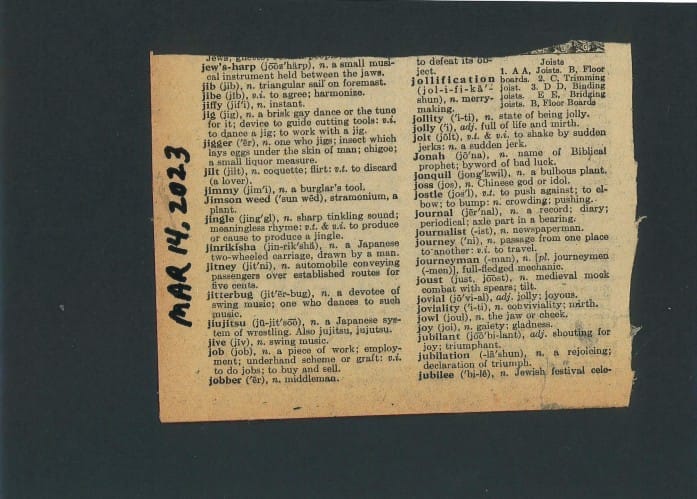 MAR 14, 2023
jew's-harp (jōōz'härp), n. a small musi-
cal instrument held between the jaws.
jib (jib), n. triangular sail on foremast.
jibe (jīb), v.i. to agree; harmonize.
jiffy (jif'i), n. instant.
jig (jig), n. a brisk gay dance or the tune
for it; device to guide cutting tools: v.i.
to dance a jig; to work with a jig.
jigger ('ẽr), n. one who jigs; insect which
lays eggs under the skin of man; chigoe;
a small liquor measure.
jilt (jilt), n. coquette; flirt: v.t. to discard
(a lover).
jimmy (jim'i), n. a burglar's tool.
Jimson weed ('sun wēd), stramonium, a
plant.
jingle (jing'gl), n. sharp tinkling sound;
meaningless rhyme: v.t. & v.i. to produce
or cause to produce a jingle.
jinrikisha (jin-rik'shä), n. a Japanese
two-wheeled carriage, drawn by a man.
jitney (jit'ni), n. automobile conveying
passengers over established routes for
five cents.
jitterbug (jit'ẽr-bug), n. a devotee of
swing music; one who dances to such
music.
jiujitsu (jū-jit'sōō), n. a Japanese sys-
tem of wrestling. Also jujitsu, jujutsu.
jive (jīv), n. swing music.
job (job), n. a piece of work; employ-
ment; underhand scheme or graft: v.i.
to do jobs; to buy and sell.
jobber ('ẽr), n. middleman.
to defeat its ob-
ject.
jollification
(jol-i-fi-kā'-
shun), n. merry-
making.
Joists
1. A A, Joists. B, Floor
boards. 2. C, Trimming
joist. 3. D D, Binding
joists. E E, Bridging
joists. B, Floor Boards
jollity ('i-ti), n. state of being jolly.
jolly ('i), adj. full of life and mirth.
jolt (jōlt), v.t. & v.i. to shake by sudden
jerks: n. a sudden jerk.
Jonah (jō'na), n. name of Biblical
prophet; byword of bad luck.
jonquil (jong'kwil), n. a bulbous plant.
joss (jos), n. Chinese god or idol.
jostle (jos'l), v.t. to push against; to el-
bow; to bump: n. crowding; pushing.
journal (jẽr'nal), n. a record; diary;
periodical; axle part in a bearing.
journalist (-ist), n. newspaperman.
journey ('ni), n. passage from one place
to another: v.i. to travel.
journeyman (-man), n. [pl. journeymen
(-men)], full-fledged mechanic.
joust (just, jōōst), n. medieval mock
combat with spears; tilt.
jovial (jō'vi-al), adj. jolly; joyous.
joviality ('i-ti), n. conviviality; mirth.
jowl (joul), n. the jaw or cheek.
joy (joi), n. gaiety; gladness.
jubilant (jōō'bi-lant), adj. shouting for
joy; triumphant.
jubilation (-lā'shun), n. a rejoicing;
declaration of triumph.
jubilee ('bi-lē), n. Jewish festival cele-